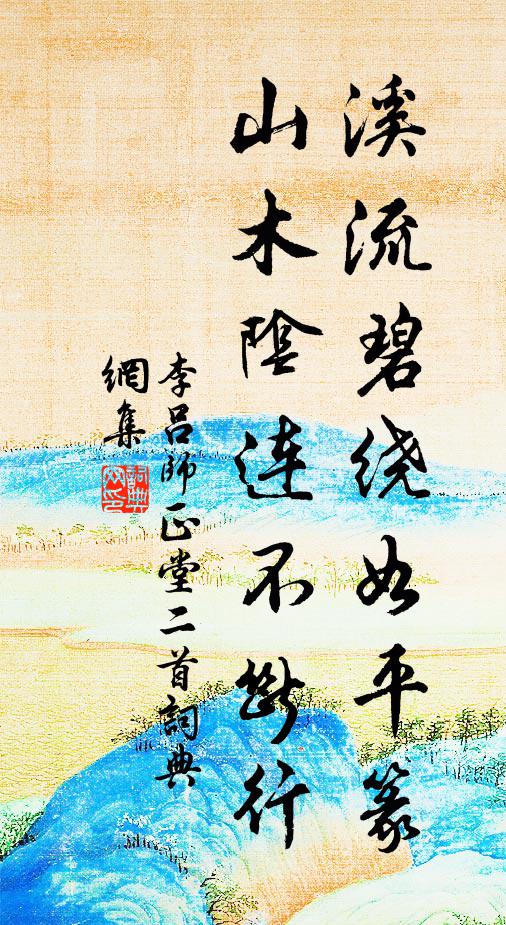 溪流碧绕如平篆
山木陰连不斷行
李呂師正堂二首詞典
網集